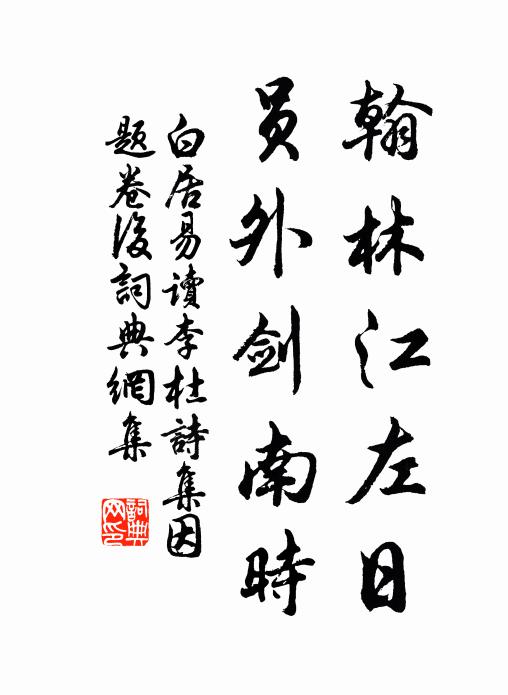 翰林江左日
員外劍南時
白居易讀李杜詩集因
題卷後詞典網集
詞典網印